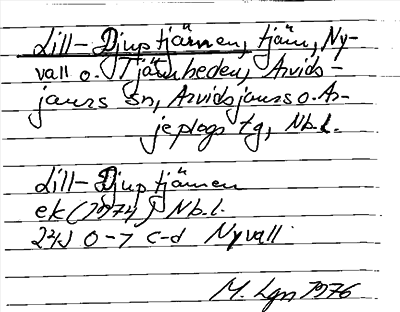 Lill-Djuptjärnen, tjärn, Ny-
vall o. Tjärnheden, Arvids-
jaurs sn, Arvidsjaurs o. Ar-
jeplogs tg, Nb.l.
Lill-Djuptjärnen
ek (1974) Nb.l.
24J 0-7 c-d Nyvall
M. Lgn 1976